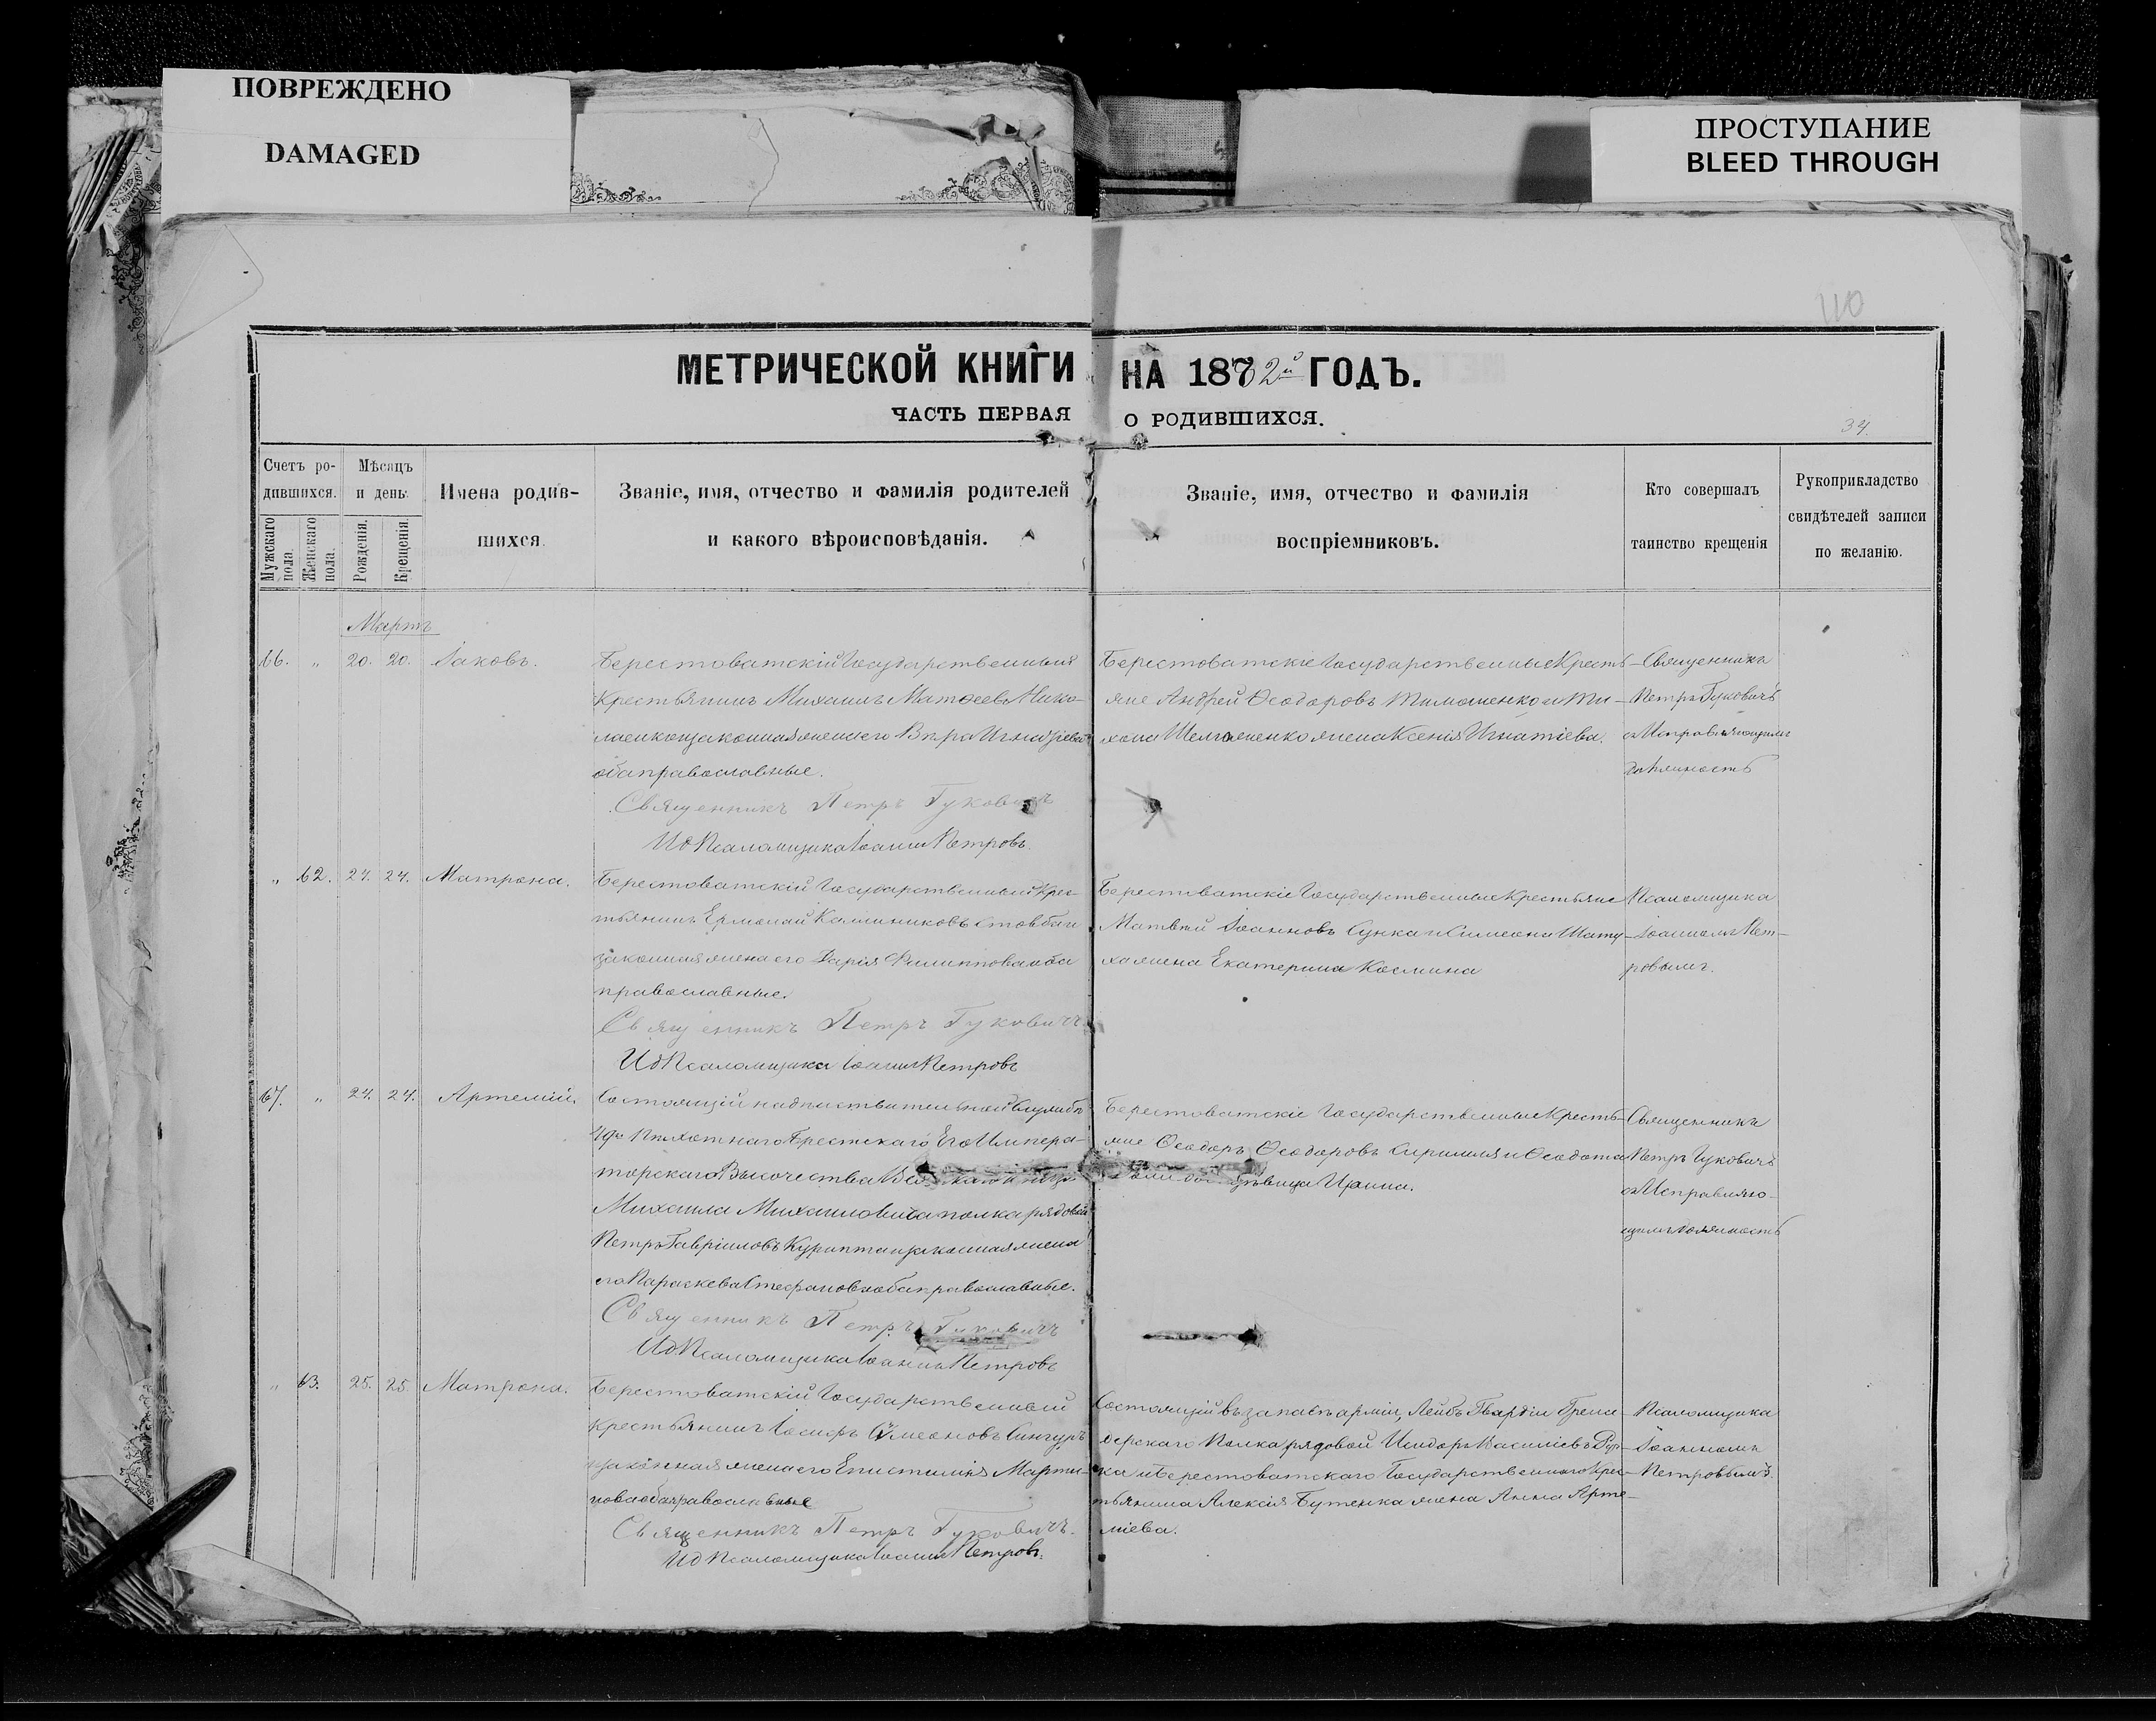 ПОВРЕЖДЕНО
DAMAGED
ПРОСТУПАНИЕ
BLEED THROUGH
110
МЕТРИЧЕСКОЙ КНИГИ НА 1872й ГОДЪ.
ЧАСТЬ ПЕРВАЯ О РОДИВШИХСЯ.
34.
Счетъ ро-
дившихся.
Мужскаго пола.
Женскаго пола.
Мѣсяцъ
и день.
Рожденія.
Крещенія.
Имена родив-
шихся.
Званіе, имя, отчество и фамилія родителей
и какого вѣроисповѣданія.
Званіе, имя, отчество и фамилія
воспріемниковъ.
Кто совершалъ
таинство крещенія
Рукоприкладство
свидѣтелей записи
по желанію.
Мартъ
66. " 20. 20. Іаковъ.
Берестоватскій Государственный
Крестьянинъ Михаилъ Матѳеевъ Нико-
лаенко и законная жена его Вѣра Игнатіева
оба православные.
Священникъ Петръ Гуковичъ
ИдПсаломщика Іоаннъ Петровъ.
Берестоватскіе Государственные Кресть-
яне Андрей Ѳеодоровъ Тимошенко и Ти-
хона жена Ксенія Игнатіева.
Священникъ
Петръ Гуковичъ
съ Исправляющимъ
должность
" 62. 24. 24. Матрона.
Берестоватскій Государственный Крес-
тьянинъ Ермолай Калиниковъ Стовбаги
законная жена его Дарія Филиппова оба
православные.
Священникъ Петръ Гуковичъ.
ИдПсаломщика Іоаннъ Петровъ
Берестоватскіе Государственные Крестьяне
Матвѣй Іоанновъ Сунка и Симеона Шату-
ха жена Екатерина Космина
Псаломщика
Іоанномъ Пет-
ровымъ.
67. " 24. 24. Артемій.
Состоящій на дѣйствительной службѣ
49го Пѣхотнаго Брестскаго Его Импера-
торскаго Высочества Князя
Михаила Михаиловича полка рядовой
Петръ Гавріиловъ Курипта и законная жена
его Параскева Стефанова оба православные.
Священникъ Петръ Гуковичъ
ИдПсаломщика Іоаннъ Петровъ
Берестоватскіе Государственные Кресть-
яне Ѳеодоръ Ѳеодоровъ и Ѳеодота
дѣвица Ирина.
Священникъ
Петръ Гуковичъ
съ Исправляю-
щимъ должность
" 63. 25. 25. Матрона.
Берестоватскій Государственный
Крестьянинъ Іосифъ Симеоновъ Сингуръ
и законная жена его Епистимія Марти-
нова оба православные
Священникъ Петръ Гуковичъ.
ИдПсаломщика Іоаннъ Петровъ.
Состоящій въ запасѣ арміи, Лейбъ Гвардіи Грена-
дерскаго Полка рядовой Исидоръ Василіевъ
ка и Берестоватскаго Государственнаго Крес-
тьянина Алексія Бутенка жена Анна Арте-
міева.
Псаломщика
Іоанномъ
Петровымъ.